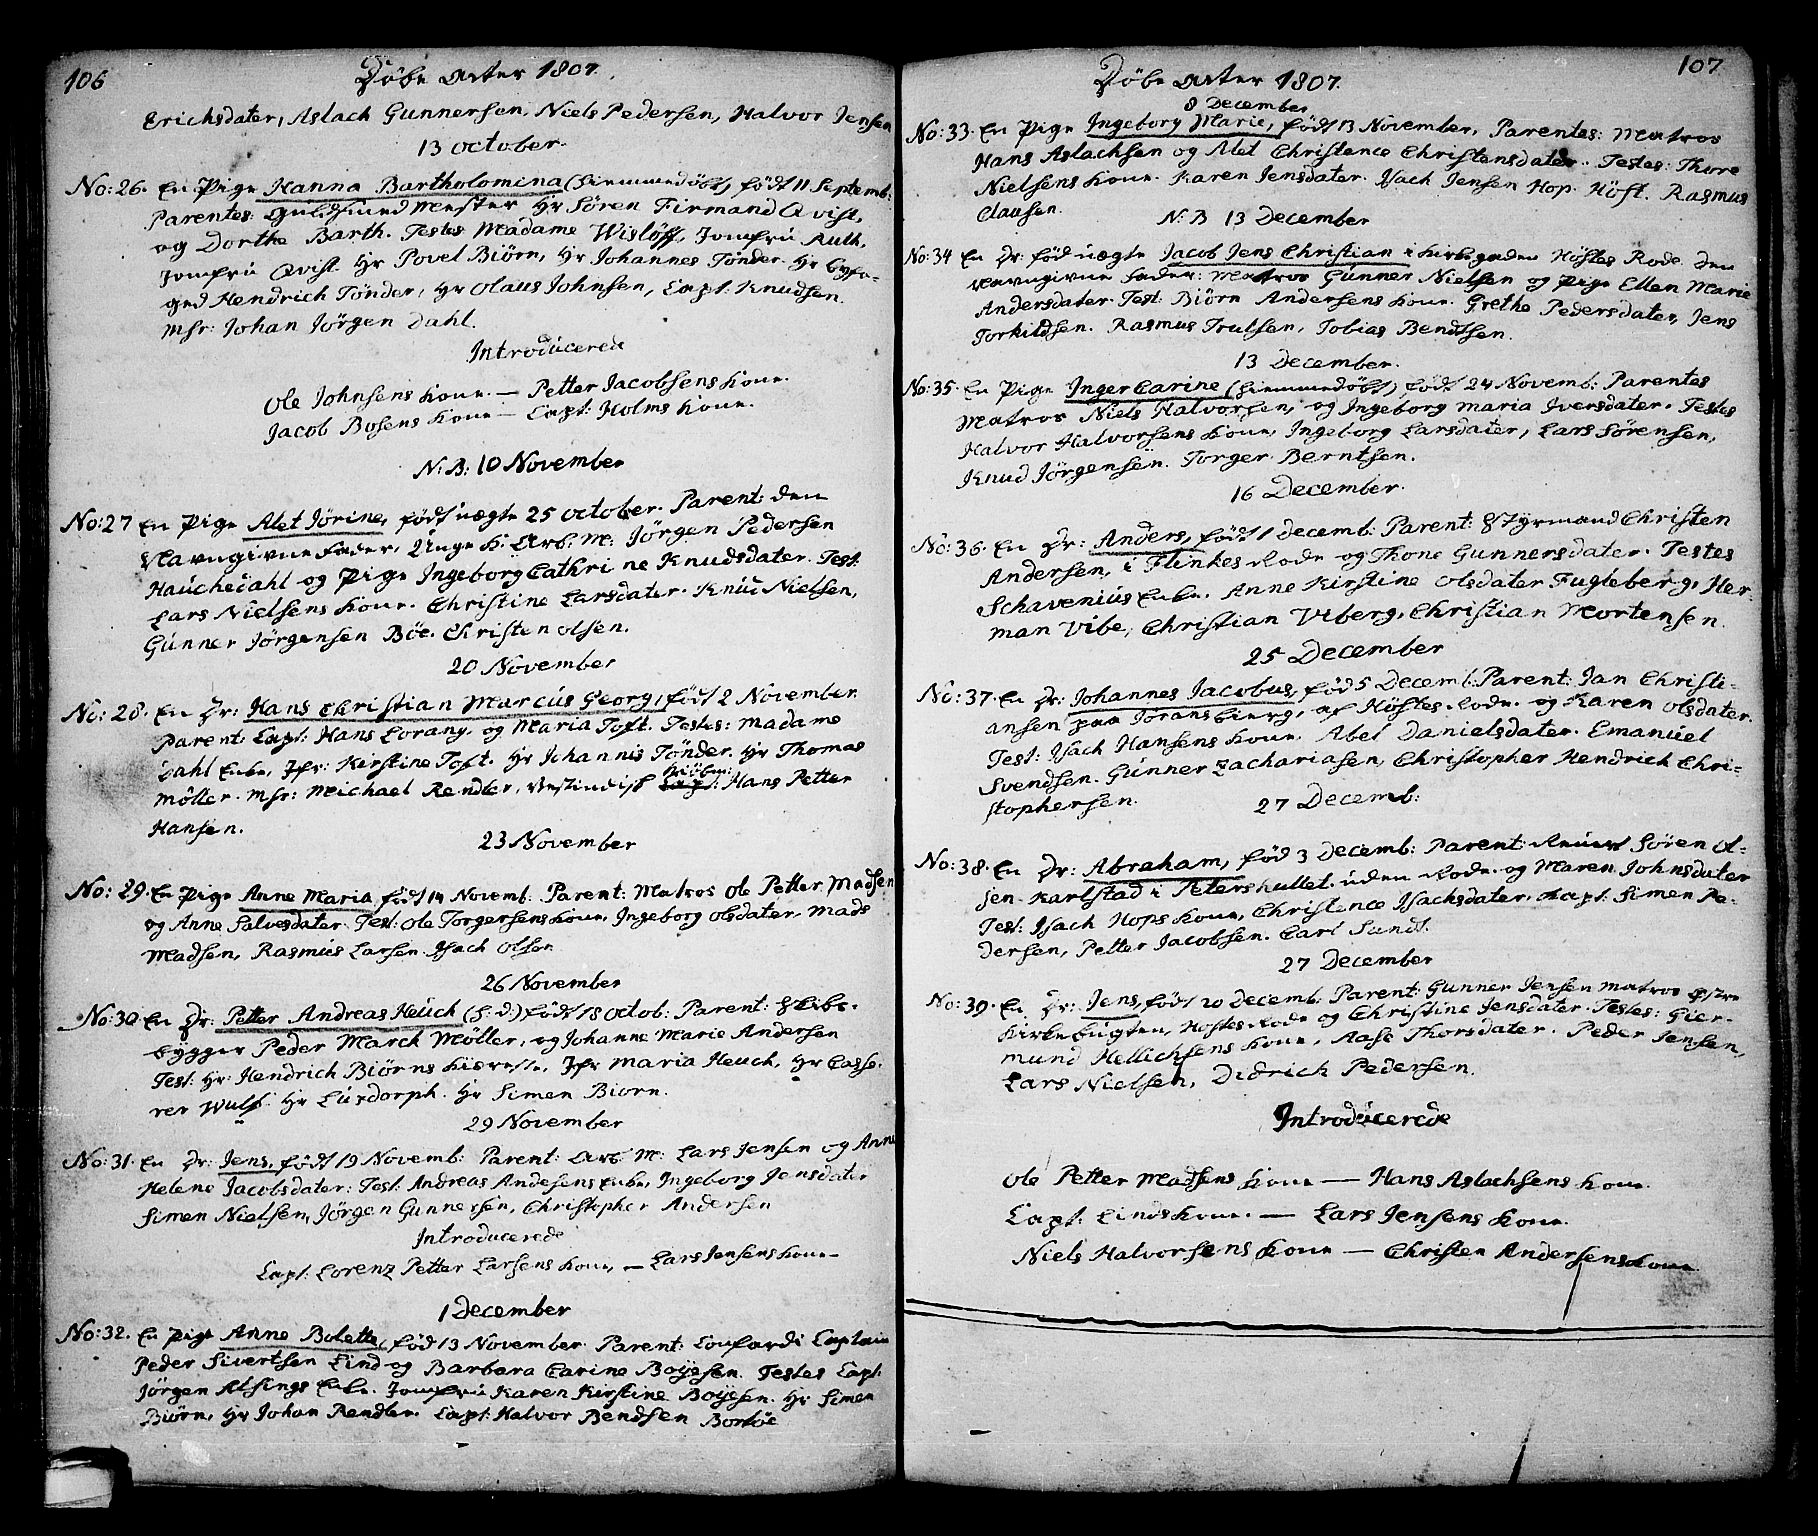 106
Döbe Acter 1807.
Erichsdater, Aslach Gunnersen, Niels Pedersen, Halvor Jensen
13 October.
No: 26. En Pige Hanna Bartholomina (hiemmedöbt) födt 11 Septemb:
Parentes Guldsmed Mester Hr Sören Firmand Qvist,
og Dorthe Barth. Testes Madame Wislöff, Jomfrü Ruth,
Jomfrü Qvist. Hr Povel Biörn, Hr Johannes Tönder. Hr Byfo-
ged Hendrich Tönder, Hr Olaus Johnsen, Capt: Knudsen.
Msr: Johan Jörgen Dahl.
Introdücerede
Ole Johnsens Kone — Petter Jacobsens Kone.
Jacob Bosens Kone — Capt: Holms Kone.
N:B: 10 November
No: 27 En Pige Alet Jörine, födt üægte 25 October. Parent: den
Navngivne Fader, Unge K: Arb: M: Jörgen Pedersen
Haüchedahl og Pige Ingeborg Cathrine Knudsdater. Test:
Lars Nielsens Kone. Christine Larsdater. Knüd Nielsen,
Günner Jörgensen Böe. Christen Olsen.
20 November
No: 28. En Dr: Hans Christian Marcüs Georg, födt 2 November.
Parent: Capt: Hans Lorany og Maria Toft. Testes: Madame
Dahl Enke, Jfr: Kirstine Toft. Hr Johannis Tönder. Hr Thomas
Möller. Msr: Michael Rendler, Vestindisk Hans Petter
Hansen.
23 November
No: 29. En Pige Anne Maria födt 14 Novemb: Parent: Matros Ole Petter Madsen
og Anne Salvesdater. Test: Ole Torgersens Kone, Ingeborg Olsdater. Mads
Madsen, Rasmüs Larsen. Isach Olsen
26 November
No: 30 En Dr: Petter Andreas Heüch (h: d:) födt 18 Octob: Parent: Skibs-
bygger Peder March Möller, og Johanne Marie Andersen
Test: Hr: Hendrich Biörns Kiæreste, Jfr Maria Heuch, Hr Casse-
rer Wulf. Hr Lüsdorph. Hr Simen Biorn.
29 November
No: 31. En Dr: Jens, födt 19 Novemb: Parent: Arb: M: Lars Jensen og Anne
Helene Jacobsdater: Test: Andreas Andesens Enke, Ingeborg Jensdater
Simen Nielsen, Jörgen Gunnersen, Christopher Andersen
Introducerede
Capt: Lorenz Petter Larsens Kone, — Lars Jensens Kone
1 December
No: 32. En Pige Anne Bolette, föd 13 November. Parent: Coufardi Captain
Peder Sivertsen Lind og Barbara Carine Boyesen. Testes Capt:
Jörgen Alsings Enke. Jomfrü Karen Kirstine Boyesen. Hr Simen
Biörn, Hr Johan Rendler. Capt: Halvor Bendsen Borböe
107
Döbe Acter 1807.
8 December
No: 33. En Pige Ingeborg Marie, födt 13 November, Parentes: Matros
Hans Aslachsen og Alet Christence Christensdater. Testes: Thore
Nielsens Kone. Karen Jensdater. Isach Jensen Hop. Höft. Rasmus
Clausen.
N:B 13 December
No: 34 En Dr. föd uægte Jacob Jens Christian i Kirkegaden Höftes Rode. Den
navngivne Fader: Matros Günner Nielsen og Pige Ellen Marie
Andersdater. Test: Biörn Andersens Kone. Grethe Pedersdater, Jens
Torkildsen. Rasmus Trulsen, Tobias Bendtsen.
13 December.
No: 35 En Pige Inger Carine (hiemmedöbt) födt 24 Novemb: Parentes
Matros Niels Halvorsen, og Ingeborg Maria Iversdater. Testes
Halvor Halvorsens Kone, Ingeborg Larsdater, Lars Sörensen,
Knud Jörgensen. Torger Berntsen.
16 December.
No: 36. En Dr: Anders, födt 1 Decemb: Parent: Styrmand Christen
Andersen, i Flinkes Rode og Thone Gunnersdater. Testes
Schavenius Enke. Anne Kirstine Olsdater Fugleberg, Her-
man Vibe, Christian Viberg, Christian Mortensen.
25 December
No: 37. En Dr: Johannes Jacobus, föd 5 Decemb: Parent: Jan Christi-
ansen paa Joransbierg, af Höftes Rode. og Karen Olsdater.
Test: Isach Hansens Kone. Abel Danielsdater. Emanuel
Svendsen. Günner Zachariasen, Christopher Hendrich Chri-
stophersen.
27 Decemb:
No: 38. En Dr: Abraham, föd 3 Decemb: Parent: Sören Ol-
sen Karlstad i Petershullet uden Rode. og Maren Johnsdater
Test: Isach Hops Kone, Christence Isachsdater, Capt: Simen Pe-
dersen, Petter Jacobsen. Carl Sundt.
27 December
No: 39. En Dr: Jens, födt 20 Decemb: Parent: Gunner Jensen Matros Östre
Kirkebugten, Höftes Rode og Christine Jensdater. Testes: Gier-
mund Hellichsens Kone, Aase Thorsdater. Peder Jensen,
Lars Nielsen, Didrich Pedersen.
Introdücerede
Ole Petter Madsens Kone — Hans Aslachsens Kone.
Capt: Linds Kone. — Lars Jensens Kone.
Niels Halvorsens Kone — Christen Andersens Kone